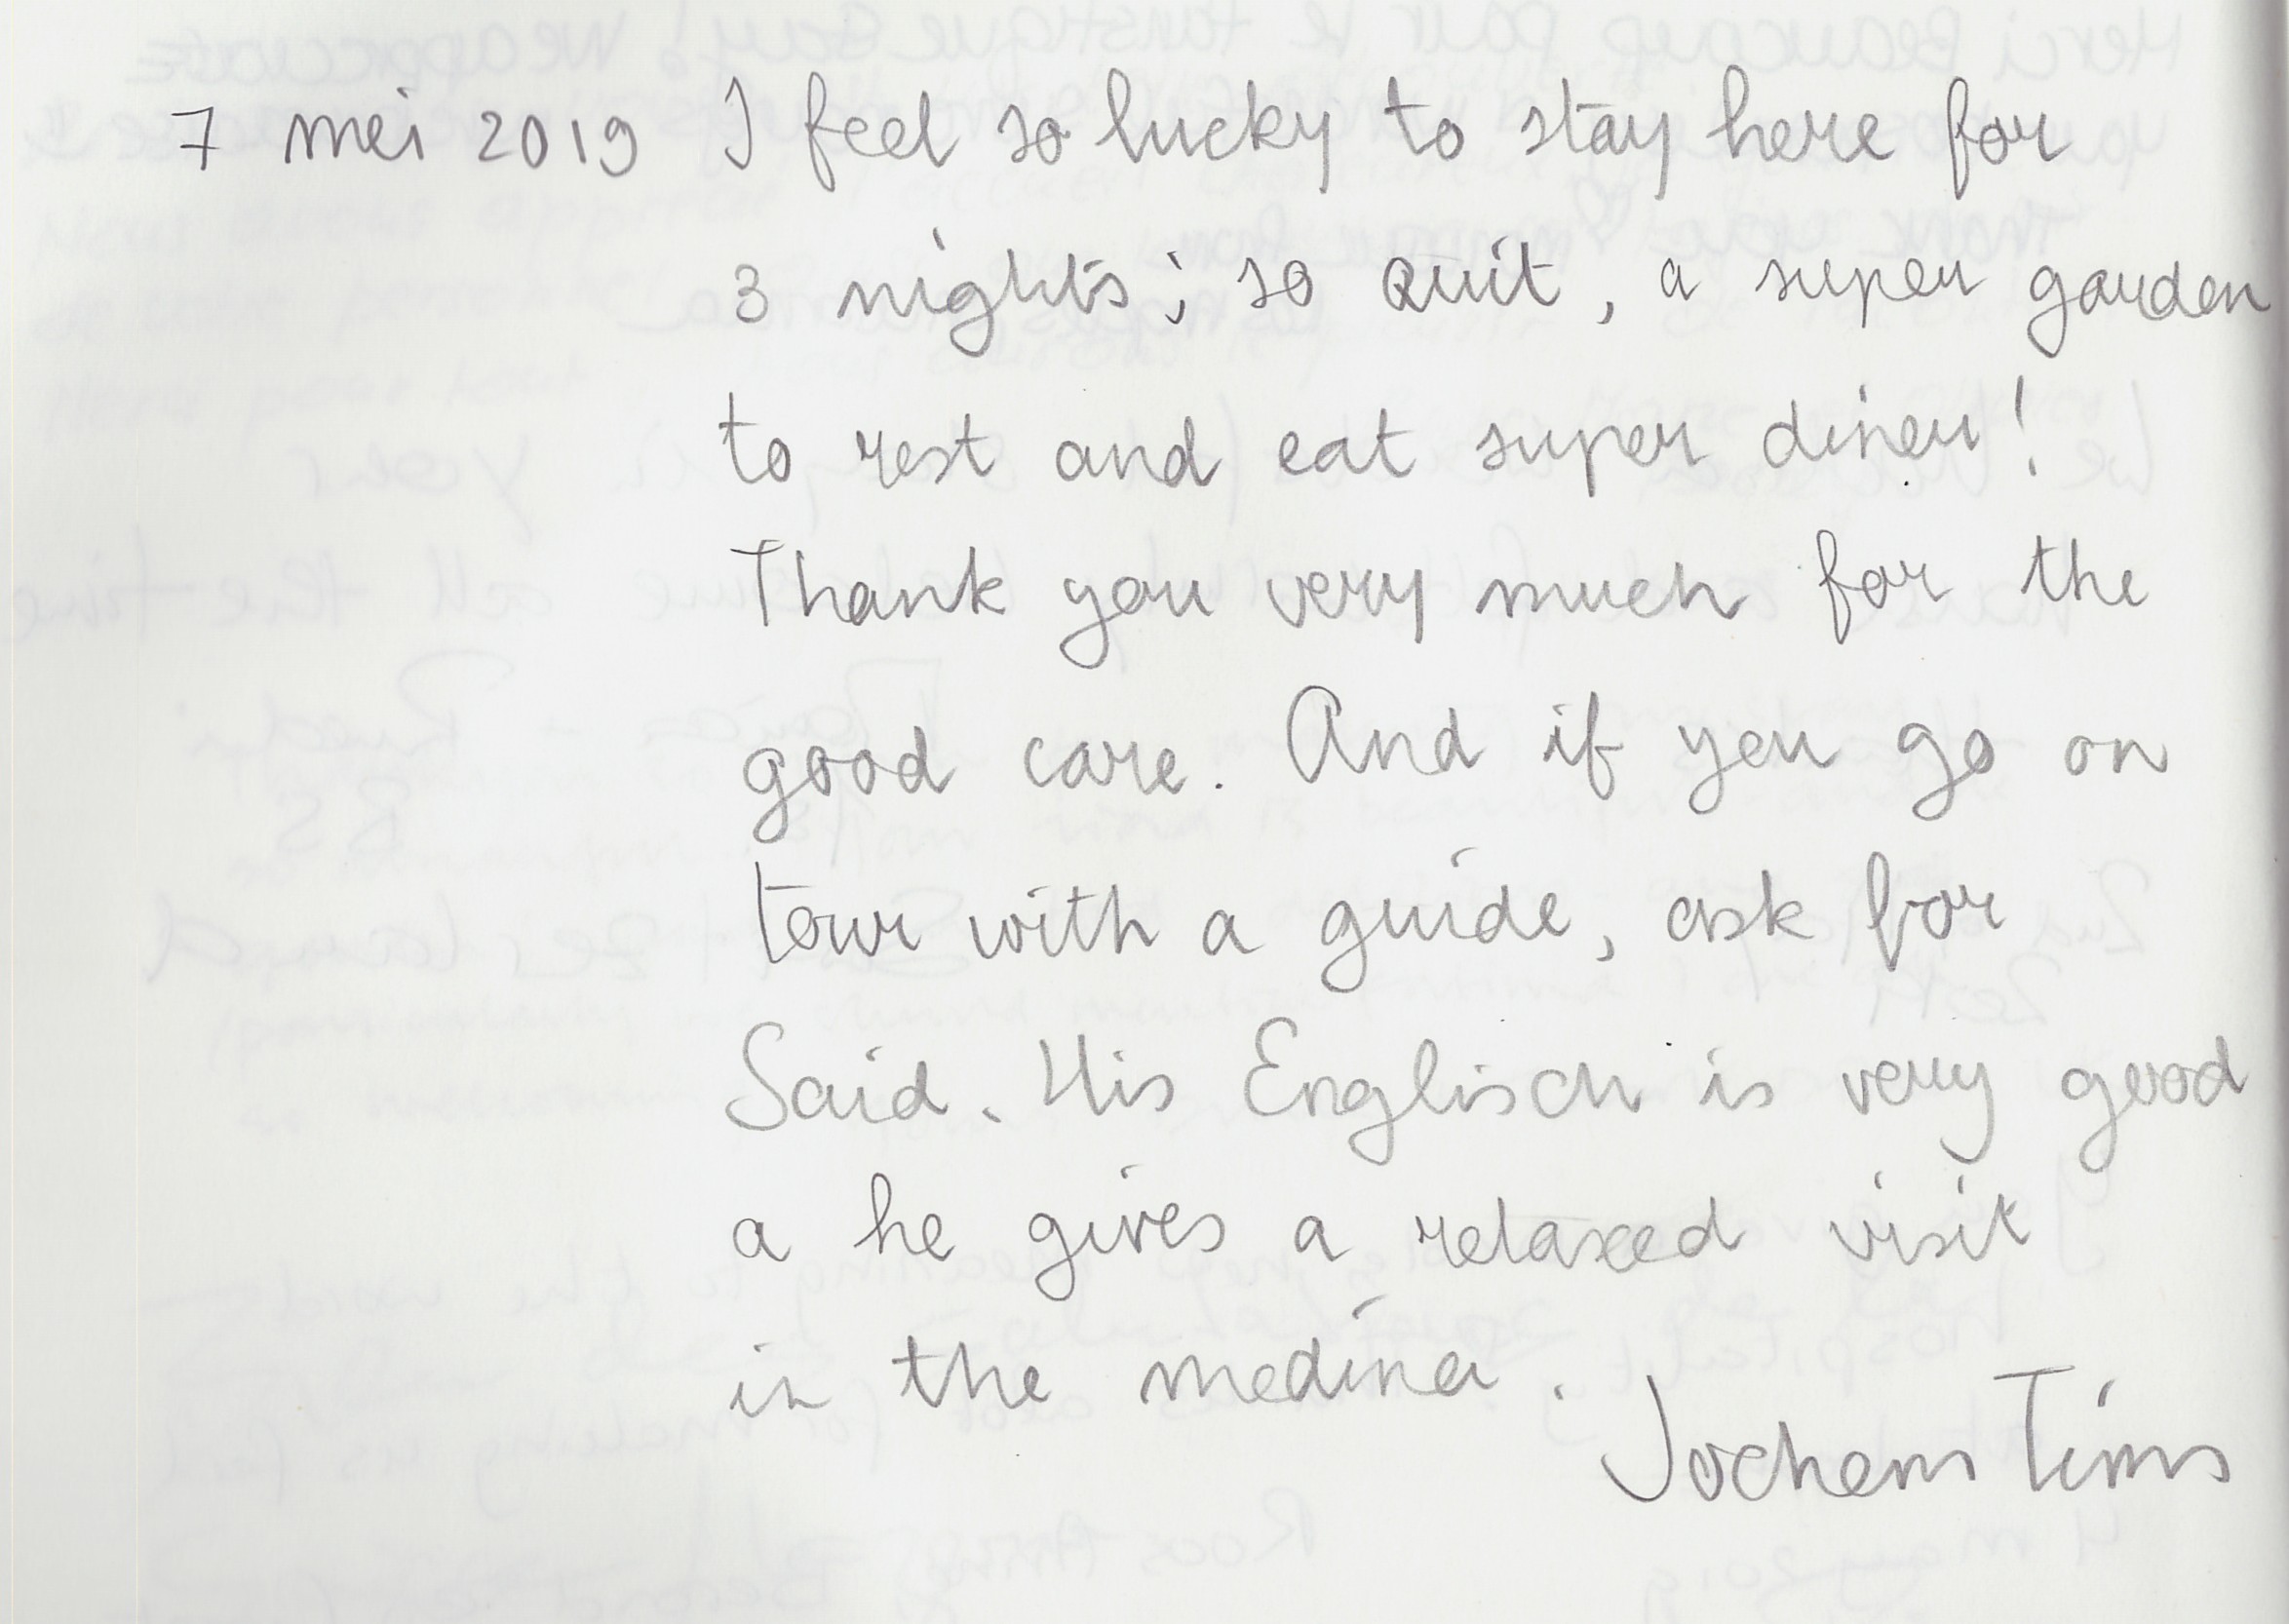 7 mei 2019 I feel so lucky to stay here for
3 nights; so quit, a super garden
to rest and eat super diner!
Thank you very much for the
good care. And if you go on
tour with a guide, ask for
Said. His Englisch is very good
a he gives a relaxed visit
in the medina.
Jochem Tims